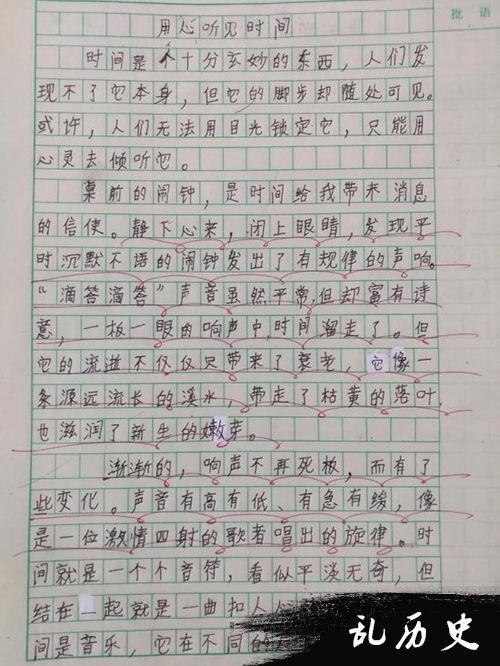 批语
用心听见时间
时间是个十分玄妙的东西，人们发
现不了它本身，但它的脚步却随处可见。
或许，人们无法用目光锁定它，只能用
心灵去倾听它。
桌前的闹钟，是时间给我带来消息
的信使。静下心来，闭上眼睛，发现平
时沉默不语的闹钟发出了有规律的声响。
“滴答滴答”声音虽然平常，但却富有诗
意，一板一眼的响声中，时间溜走了。但
它的流逝不仅仅只带来了衰老，它像一
条源远流长的溪水，带走了枯黄的落叶，
也滋润了新生的嫩芽。
渐渐的，响声不再死板，而有了
些变化。声音有高有低、有急有缓，像
是一位激情四射的歌者唱出的旋律。时
间就是一个个音符，看似平淡无奇，但
结在一起就是一曲扣人
间是音乐，它在不同的
乱历史